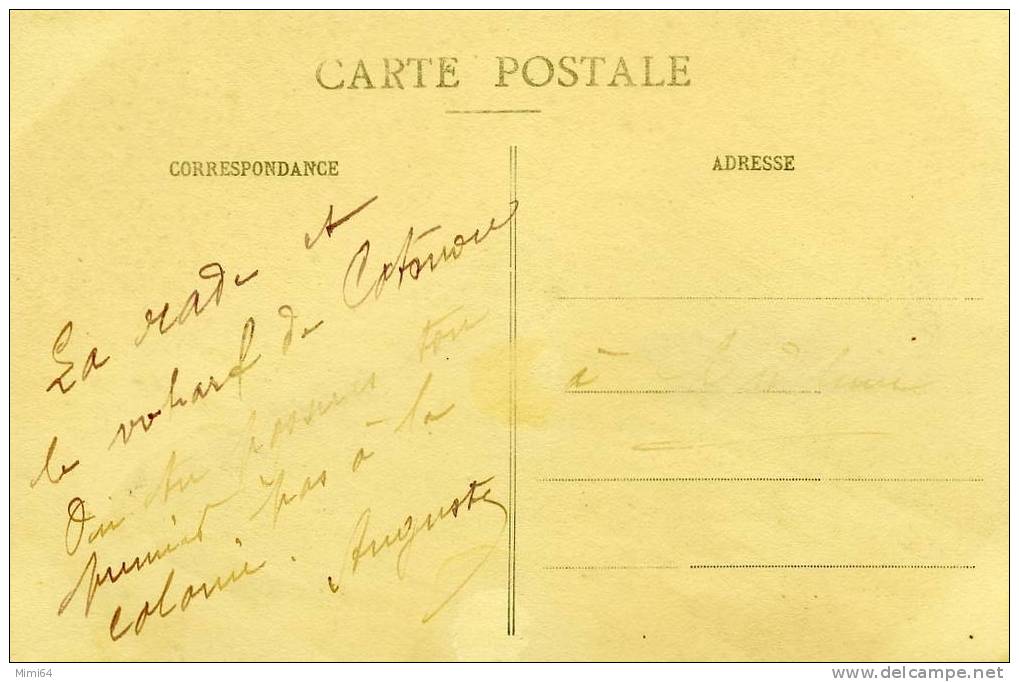 CARTE POSTALE
CORRESPONDANCE
ADRESSE
La rade et
le wharf de Cotonou
ton
premier pas à la
colonie. Auguste
à
Mimi64
www.delcampe.net